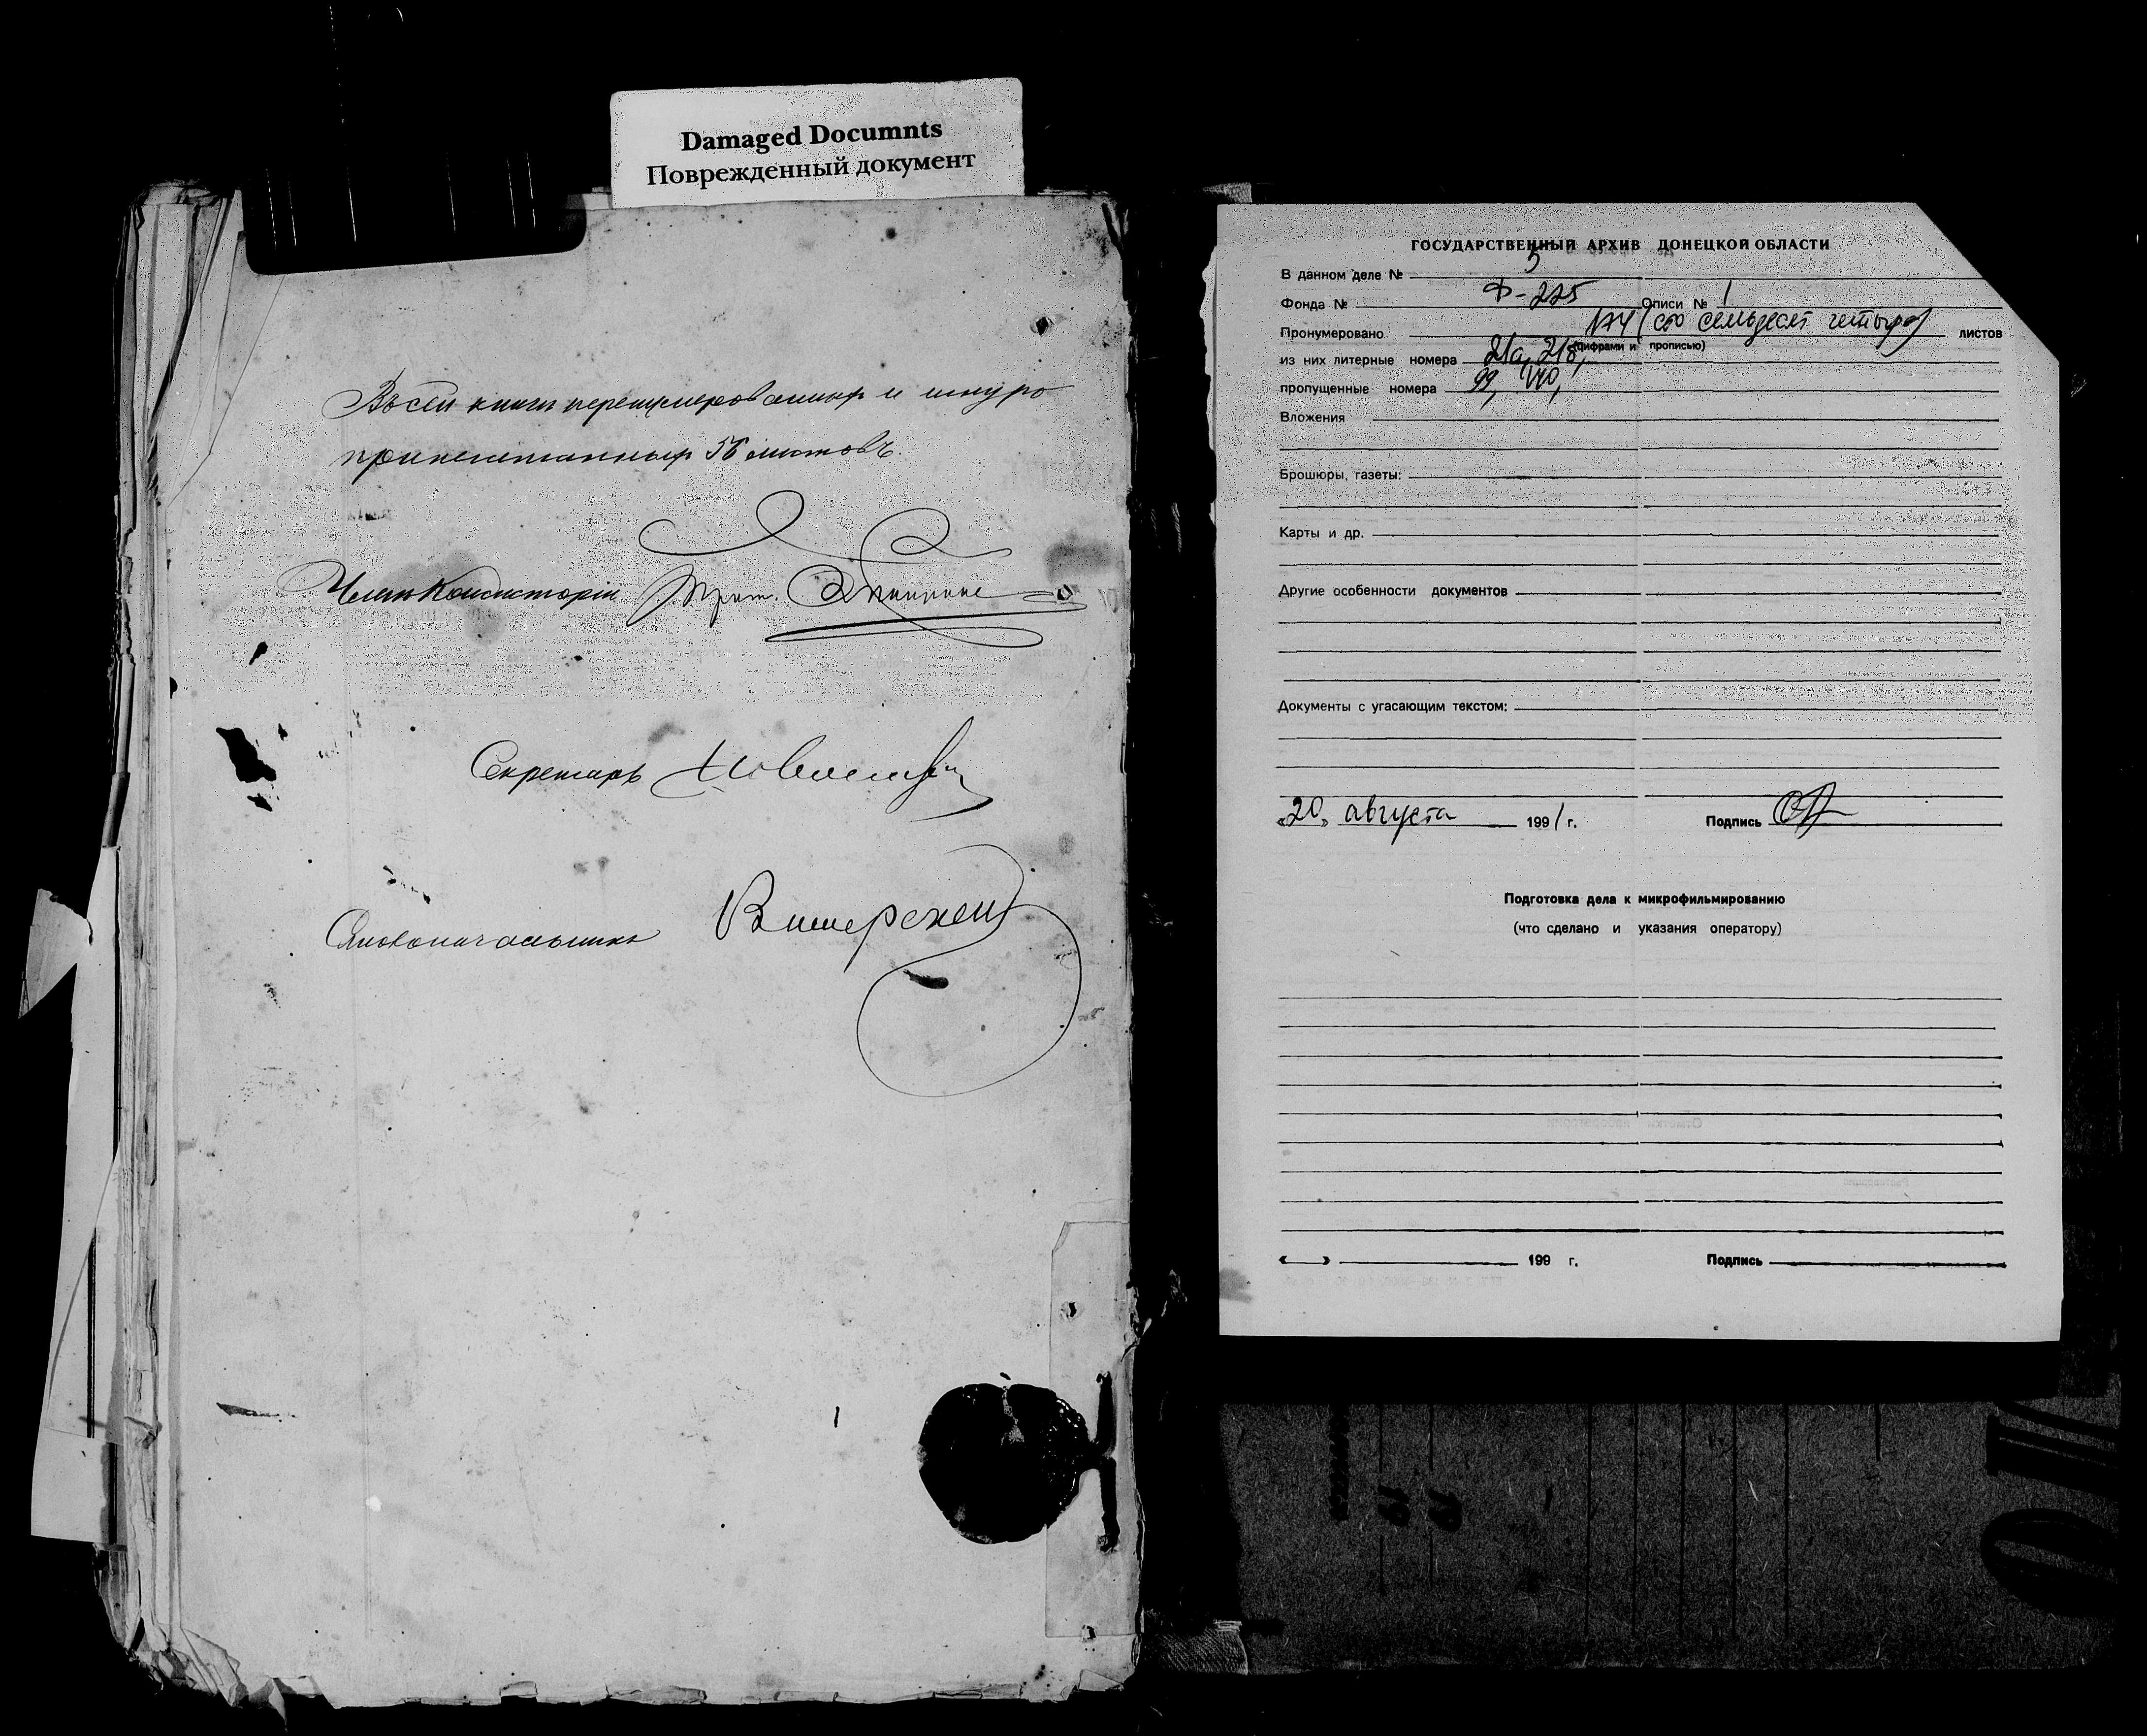 Damaged Documnts
Поврежденный документ
Въ сей книгѣ перенумерованныхъ и шнуро
припечатанныхъ 56 листовъ.
Членъ Консисторіи Прот.
Секретарь
Столоначальникъ
ГОСУДАРСТВЕННЫЙ АРХИВ ДОНЕЦКОЙ ОБЛАСТИ
В данном деле № 5
Фонда № Ф-225 Описи № 1
Пронумеровано 174 (сто семьдесят четыре) листов
(цифрами и прописью)
из них литерные номера 21а, 21б,
пропущенные номера 99, 170,
Вложения
Брошюры, газеты:
Карты и др.
Другие особенности документов
Документы с угасающим текстом:
«20» августа 1991 г. Подпись
Подготовка дела к микрофильмированию
(что сделано и указания оператору)
« » 199 г. Подпись